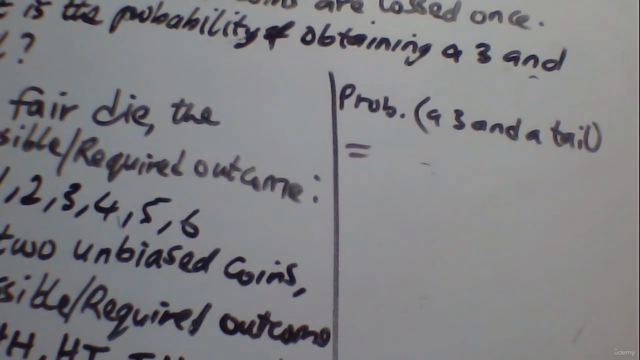 are tossed once.
is the probability of obtaining a 3 and
?
fair die, the
sible/Required outcome:
1,2,3,4,5,6
two unbiased coins,
sible/Required outcome
HH, HT,
Prob. (a 3 and a tail)
=
Udemy